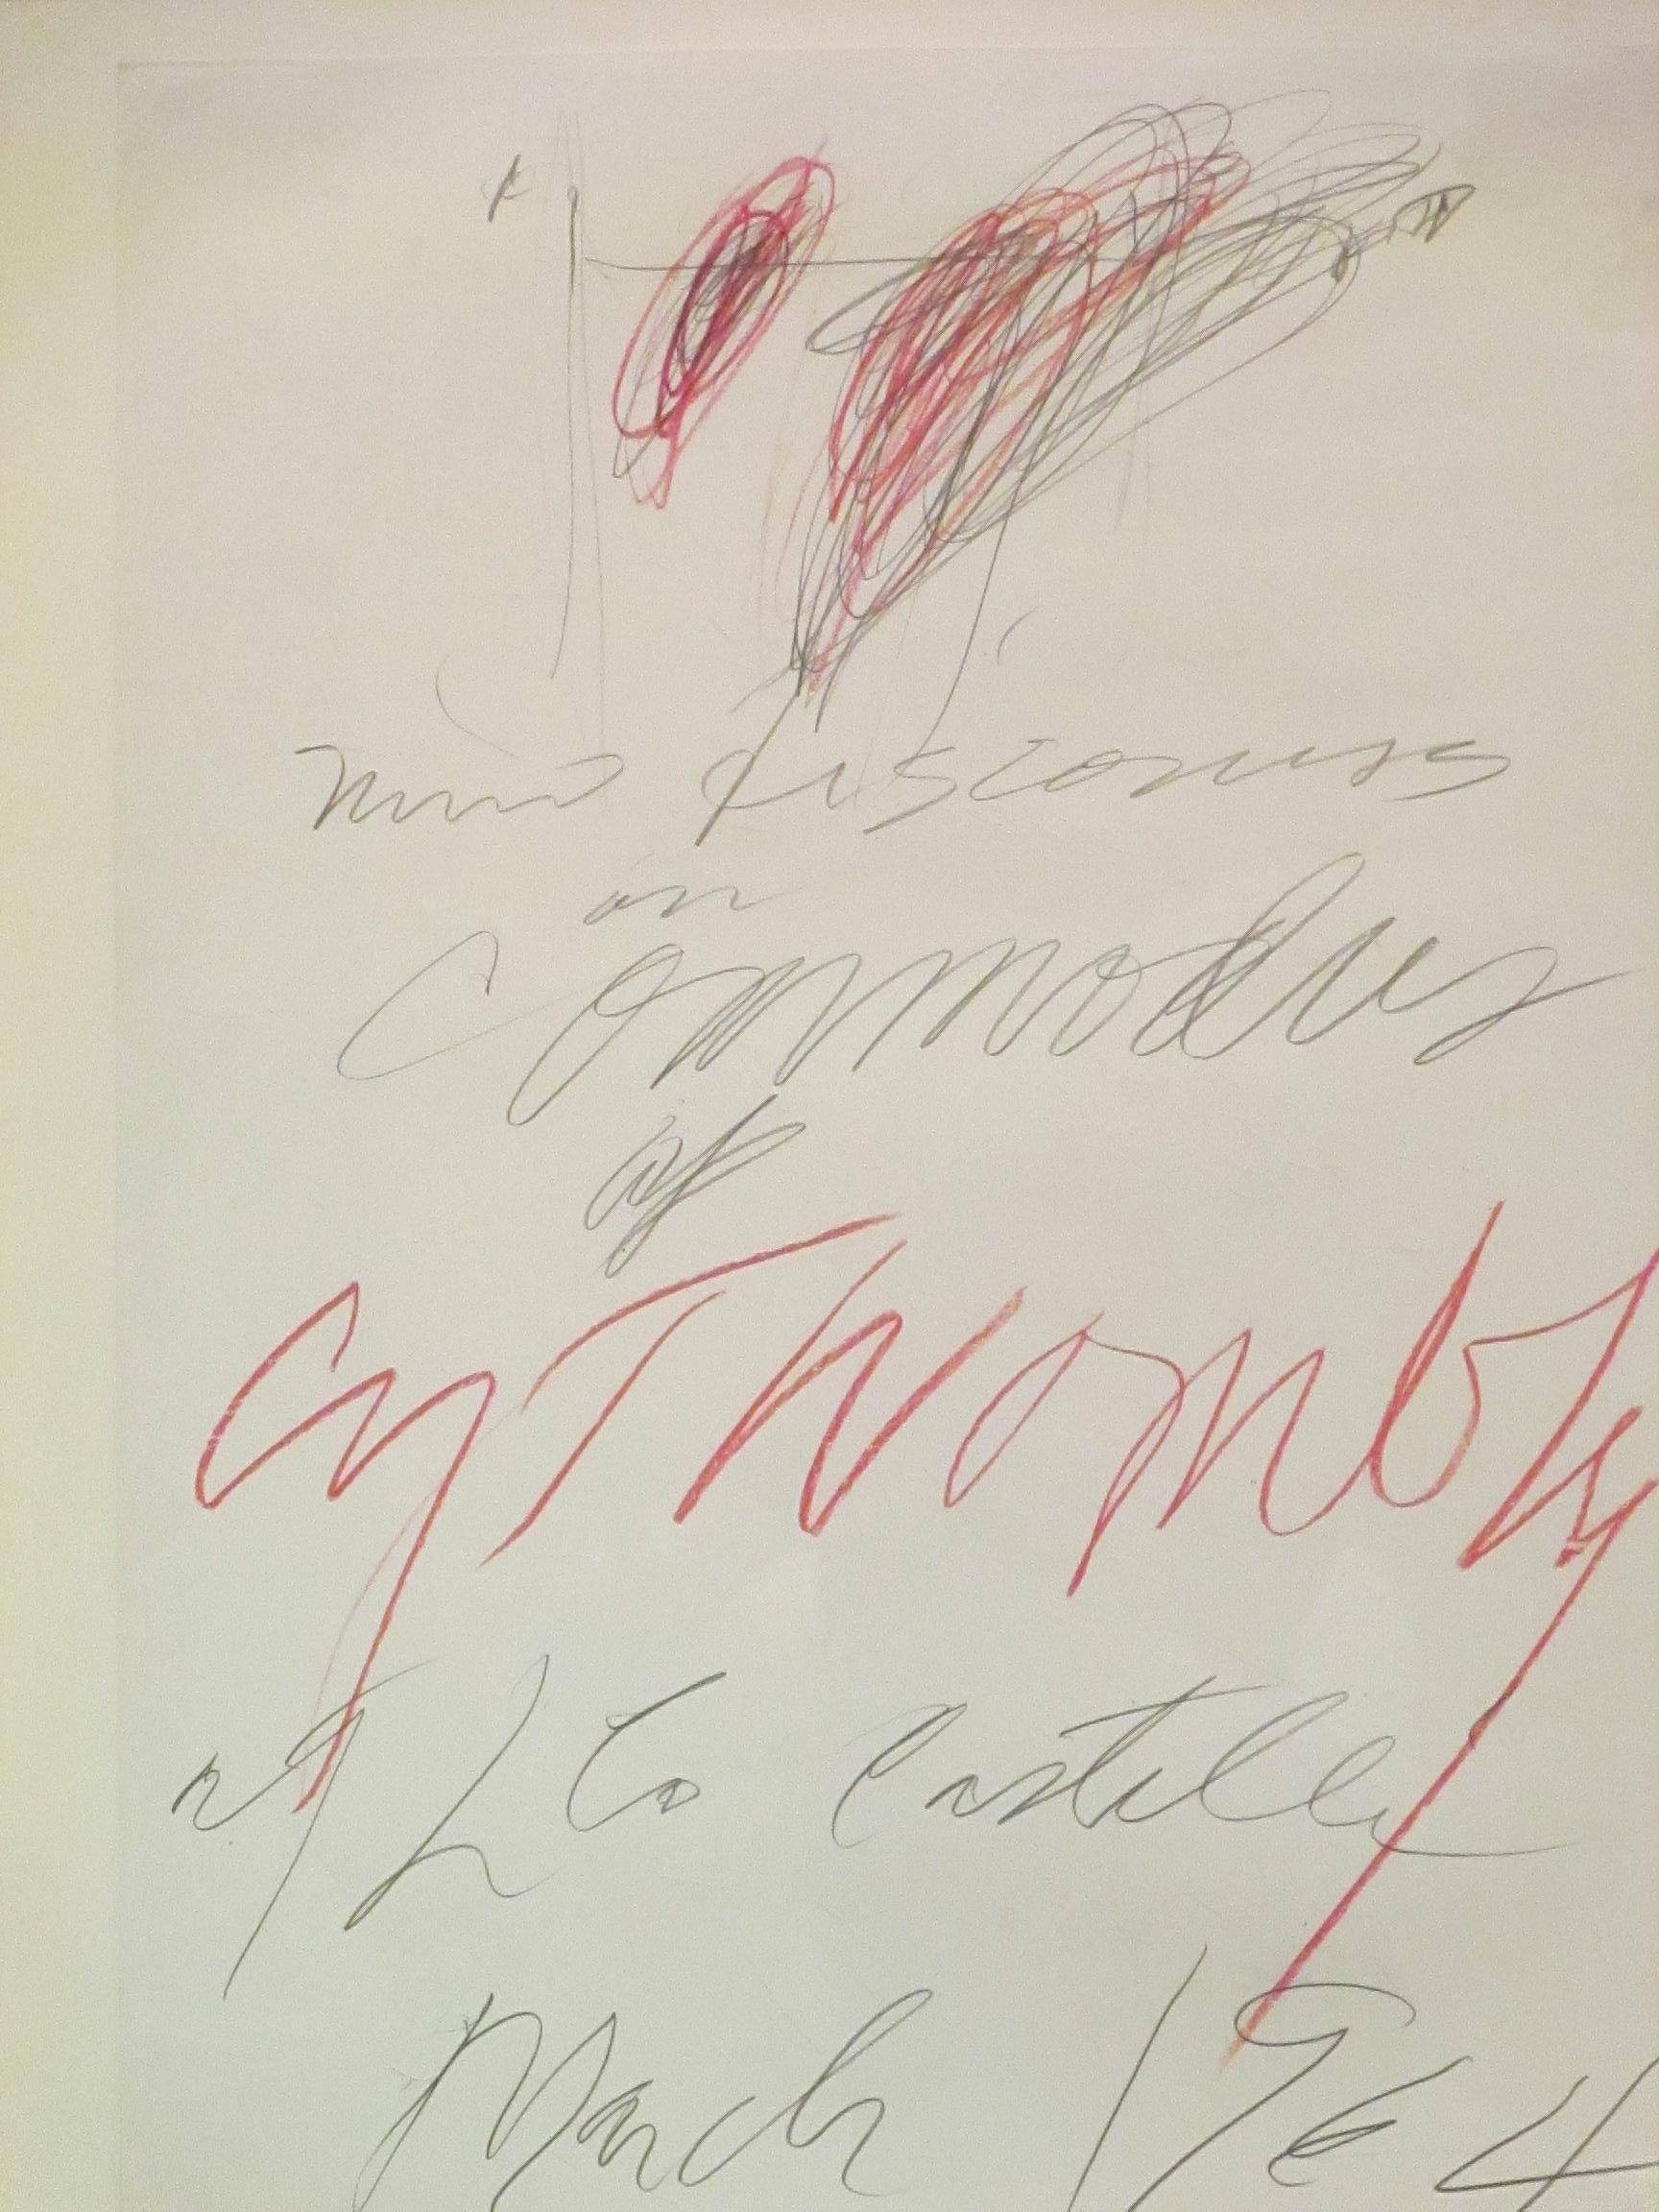 Nine discourses
on
Commodus
by
Cy Twombly
at Leo Castelli
March 1964